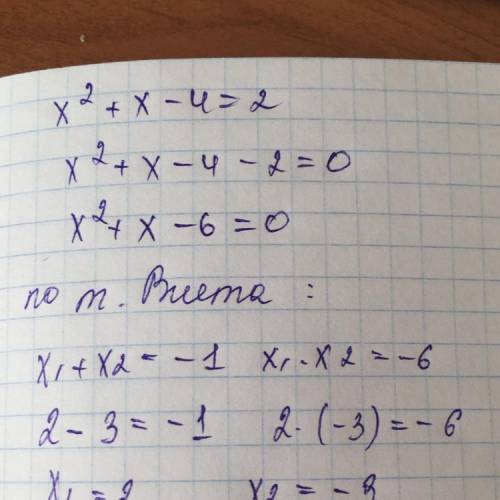 x² + x - 4 = 2
x² + x - 4 - 2 = 0
x² + x - 6 = 0
по т. Виета :
x₁ + x2 = -1 x₁ · x2 = -6
2 - 3 = -1 2 · (-3) = -6
x₁ = 2 x2 = -3